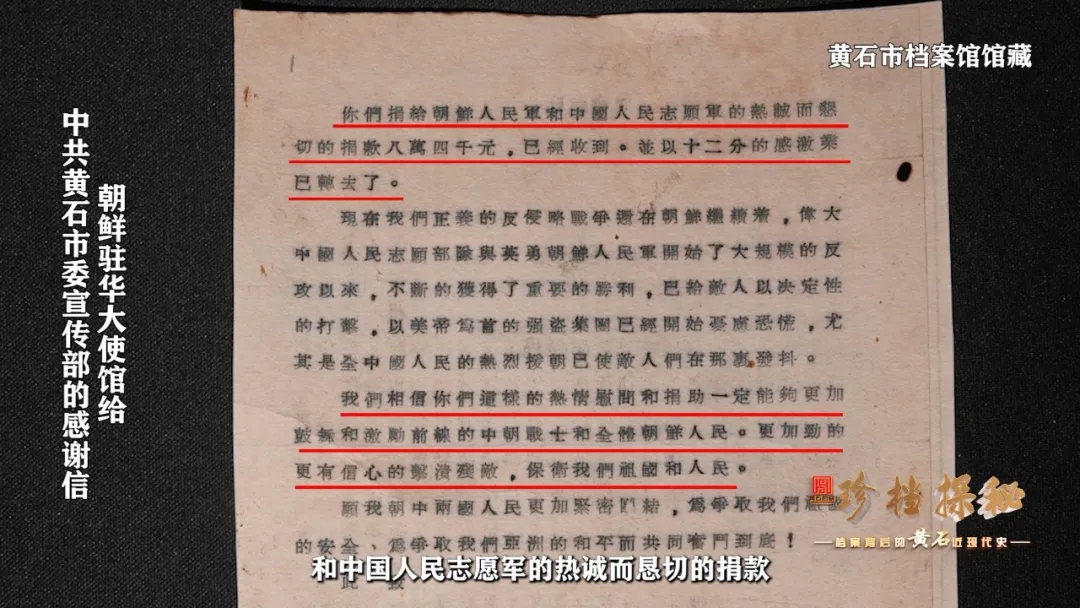 黄石市档案馆馆藏
朝鲜驻华大使馆给
中共黄石市委宣传部的感谢信
你們捐給朝鮮人民軍和中國人民志願軍的熱誠而懇
切的捐款八萬四千元，已經收到。並以十二分的感激業
已轉去了。
現在我們正義的反侵略戰爭還在朝鮮繼續着，偉大
中國人民志願部隊與英勇朝鮮人民軍開始了大規模的反
攻以來，不斷的獲得了重要的勝利，已給敵人以决定性
的打擊，以美帝爲首的强盜集團已經開始憂慮恐慌，尤
其是全中國人民的熱烈援朝已使敵人們在那裏發抖。
我們相信你們這樣的熱情慰問和捐助一定能夠更加
鼓舞和激励前線的中朝戰士和全體朝鮮人民。更加勁的
更有信心的擊潰殘敵，保衛我們祖國和人民。
願我朝中兩國人民更加緊密結，爲爭取我們
的安全、爲爭取我們亞洲的和平而共同奮鬥到底！
珍档探秘
档案背后的黄石近现代史
和中国人民志愿军的热诚而恳切的捐款